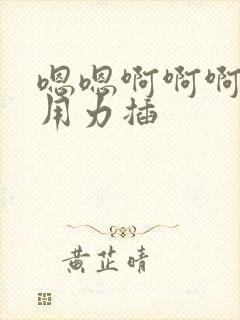 嗯嗯啊啊啊
用力插
黄芷晴